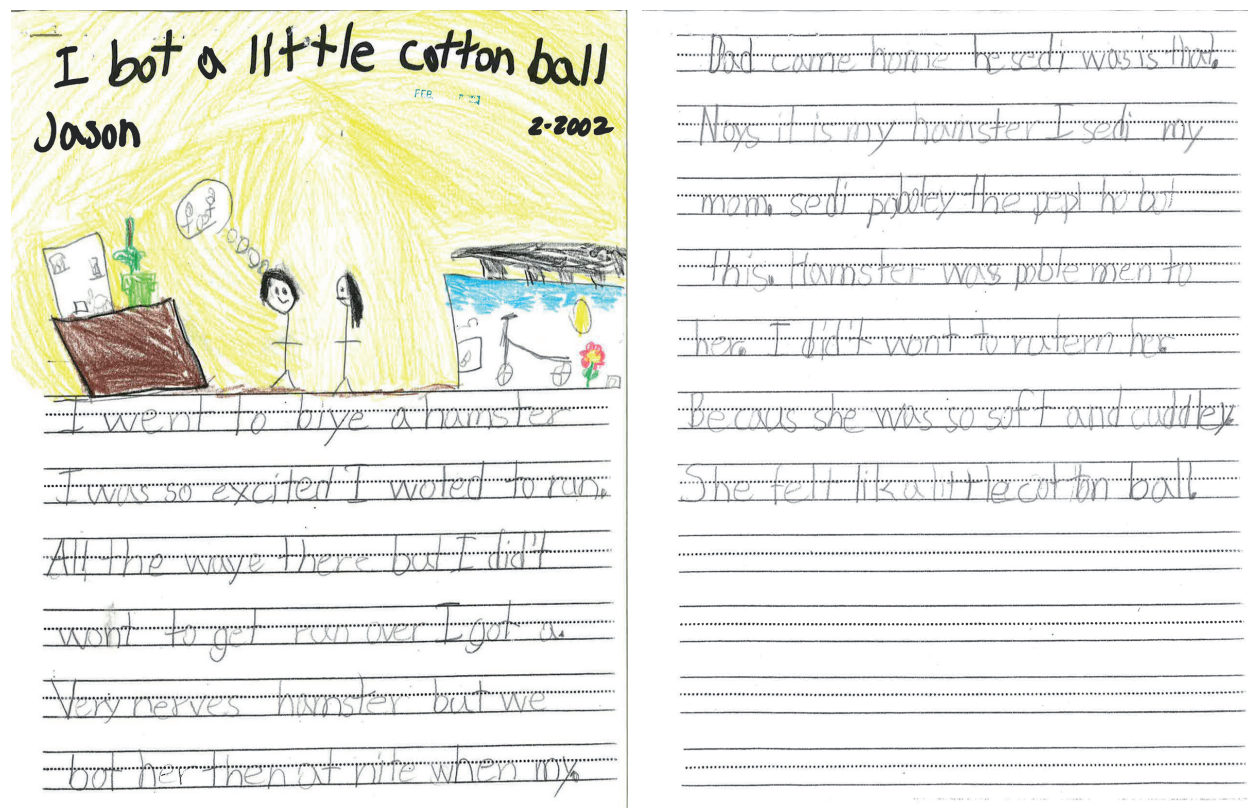 I bot a little cotton ball
FEB.
Jason
2-2002
I went to biye a hamster
I was so excited I woted to run.
All the waye there but I did't
wont to get run over I got a.
Very nerves hamster but we
bot her then at nite when my.
Dad came home he sedi was is that.
Noys it is my hamster I sedi my
mom. sedi paboley the pepl ho bot
this. Hamster was poble men to
her. I did't wont to rutern her
Becaus she was so soft and cuddley.
She felt lik a little cotton ball.